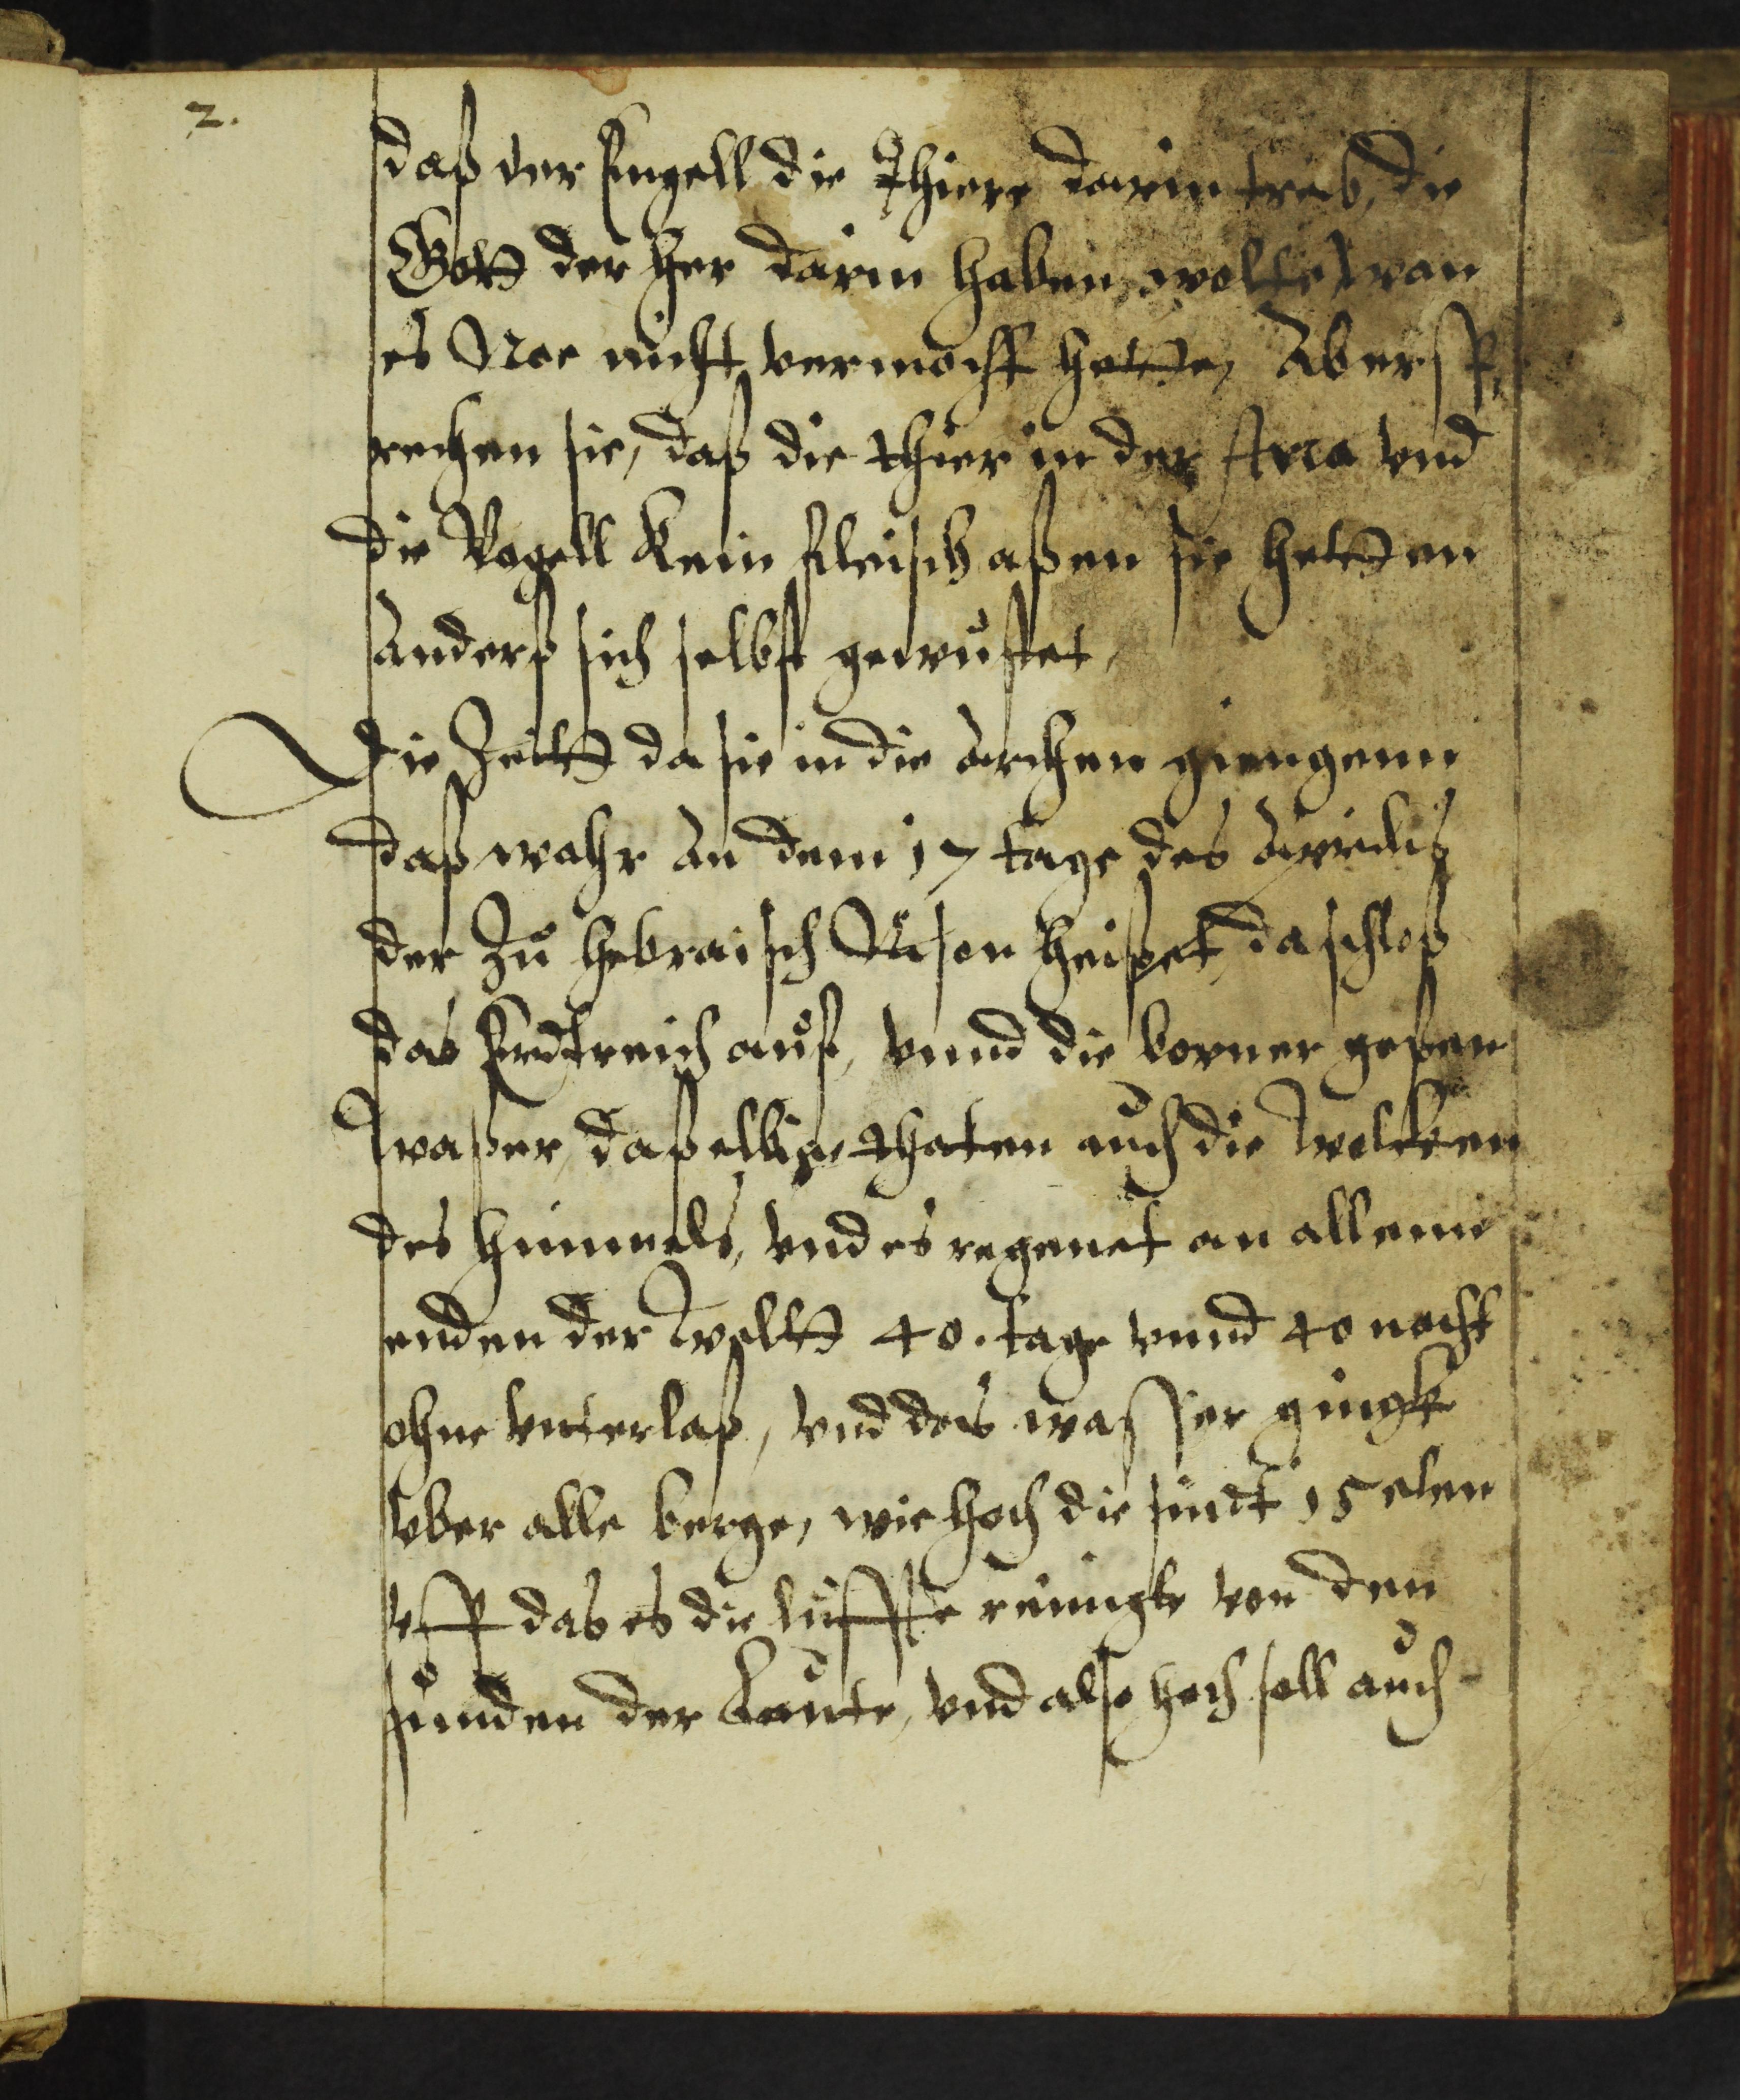 2.
daß der Engell die Thiere darin treib, die
Gott der her darin haben wolte, wan
es Noe nicht vermocht hette, Aber sp,
rechen sie, daß die thier in der Arca vnd
die Vogell kein fleisch aßen sie hetten
anderß sich selbst gewustet,
Die Zeitt da sie in die archen giengenn
daß wahr an dem 17 tage des Aprilis
der Zu hebraisch Nison heißet, da schloß
das Erdtreich auf, vnnd die borner goßen
waßer, daßelbige thaten auch die wolcken
des himmels, vnd es regenet an allenn
enden der welt 40. tage vnnd 40 nacht
ohne vnterlaß, vnd das wasser gingk
vber alle berge, wie hoch die sindt 15 elen
vff das es die luffte reinigte von den
sunden der Leute, vnd also hoch soll auch